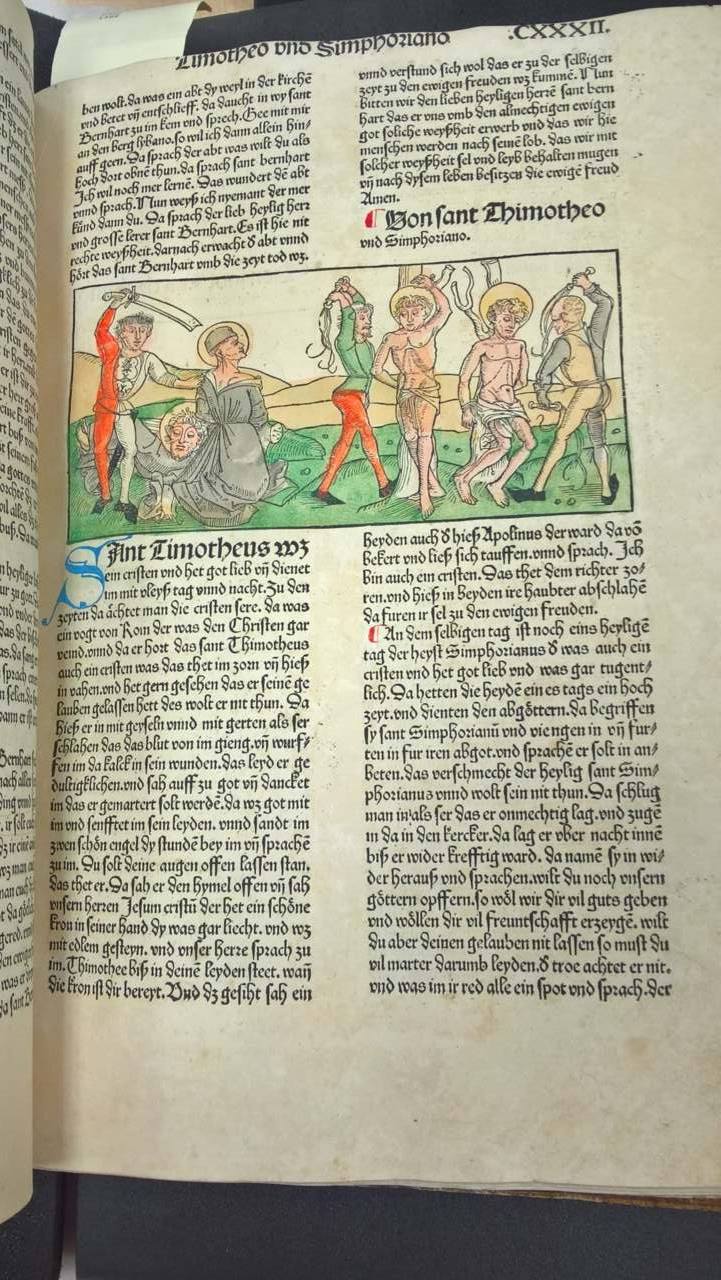 Timotheo vnd Simphoriano
.CXXXII.
ben wolt.da was ein abt dy weyl in der kirchē
vnd betet vñ entschlieff. da daucht in wy sant
Bernhart zu im kem vnd sprech. Gee mit mir
an den berg lybano.so wil ich dann allein hin⸗
auff geen. Da sprach der abt was wilt du als
hoch dort obnē thun.da sprach sant bernhart
Ich wil noch mer lernē. Das wundert dē abt
vnnd sprach. Nun weyß ich nyemant der mer
künd dann du. Da sprach der lieb heylig herr
vnd grosse lerer sant Bernhart. Es ist hie nit
rechte weyßheit.darnach erwacht d̕ abt vnnd
hört das sant Bernhart vmb die zeyt tod wz.
vnnd verstund sich wol das er zu der selbigen
zeyt zu den ewigen freuden wz kummē. Nun
bitten wir den lieben heyligen herrē sant bern
hart das er vns vmb den almechtigen ewigen
got soliche weyßheit erwerb vnd das wir hie
menschen werden nach seinē lob. das wir mit
solcher weyßheit sel vnd leyb behalten mugen
vñ nach dysem leben besitzen die ewigē freud
Amen.
Von sant Thimotheo
vnd Simphoriano.
SAnt Timotheus wz
ein cristen vnd het got lieb vñ dienet
im mit vleyß tag vnnd nacht. Zu den
zeyten da ächtet man die cristen sere. da was
ein vogt von Rom der was den Christen gar
veind.vnnd da er hort das sant Timotheus
auch ein cristen was das thet im zorn vñ hieß
in vahen.vnd het gern gesehen das er seinē ge
lauben gelassen hett des wolt er nit thun. Da
hieß er in mit geyseln vnnd mit gerten als ser
schlahen das das blut von im gieng.vñ wurf⸗
fen im da kalck in sein wunden.das leyd er ge
dultigklichen.vnd sah auff zu got vñ dancket
im das er gemartert solt werdē.da wz got mit
im vnd senfftet im sein leyden. vnnd sandt im
zwen schön engel dy stundē bey im vñ sprachē
zu im. Du solt deine augen offen lassen stan.
das thet er. Da sah er den hymel offen vñ sah
vnsern herren Jesum cristū der het ein schöne
kron in seiner hand dy was gar liecht. vnd wz
mit edlem gesteyn. vnd vnser herre sprach zu
im. Thimothee biß in deinē leyden steet. wañ
die kron ist dir bereyt. Vnd dz gesiht sah ein
heyden auch d̕ hieß Apolinus der ward da vō
bekert vnd ließ sich tauffen.vnnd sprach. Ich
bin auch ein cristen. Das thet dem richter zo⸗
ren.vnd hieß in beyden ire haubter abschlahē
da furen ir sel zu den ewigen freuden.
An dem selbigen tag ist noch eins heyligē
tag der heyst Simphorianus d̕ was auch ein
cristen vnd het got lieb vnd was gar tugent⸗
lich. Da hetten die heydē eines tags ein hoch
zeyt.vnd dienten den abgöttern.da begriffen
sy sant Simphorianū vnd viengen in vñ fur⸗
ten in fur iren abgot.vnd sprachē er solt in an⸗
beten.das verschmecht der heylig sant Sim⸗
phorianus vnnd wolt sein nit thun. Da schlug
man in als ser das er onmechtig lag.vnd zugē
in da in den kercker.da lag er vber nacht innē
biß er wider krefftig ward. da namē sy in wi⸗
der herauß vnd sprachen.wilt du noch vnsern
göttern opffern.so wöl wir dir vil guts geben
vnd wöllen dir vil freuntschafft erzeygē. wilt
du aber deinen gelauben nit lassen so must du
vil marter darumb leyden.d̕ troe achtet er nit.
vnd was im ir red alle ein spot vnd sprach.der